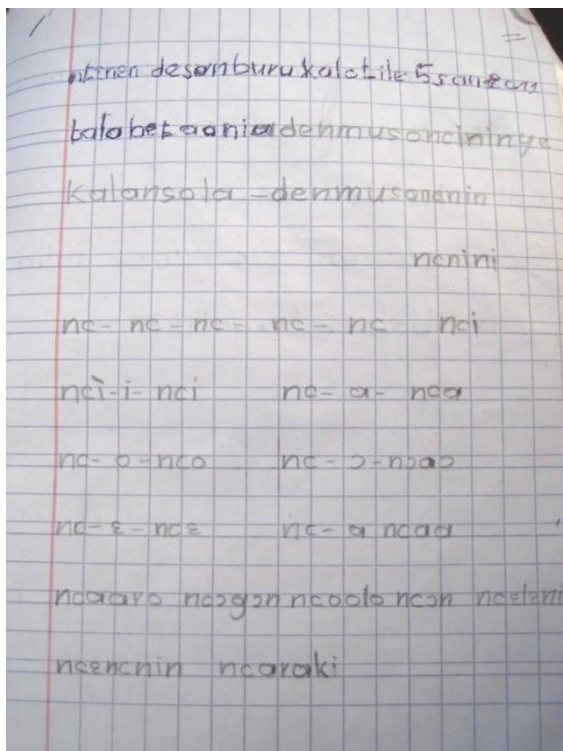 ntenen desanburukalotile 5sanfan
balabetaoniadenmusoncininye
kalansola -denmusonanin
ncnini
nc- nc - nc - nc - nc nci
nci-i- nci nc- a- nca
nc- o - nco nc - ɔ - ncɔ
nc- ɛ - ncɛ nc - a ncaa
ncaaro ncɔgɔn ncoolo ncɔn ncɛlɛni
ncencnin ncaraki